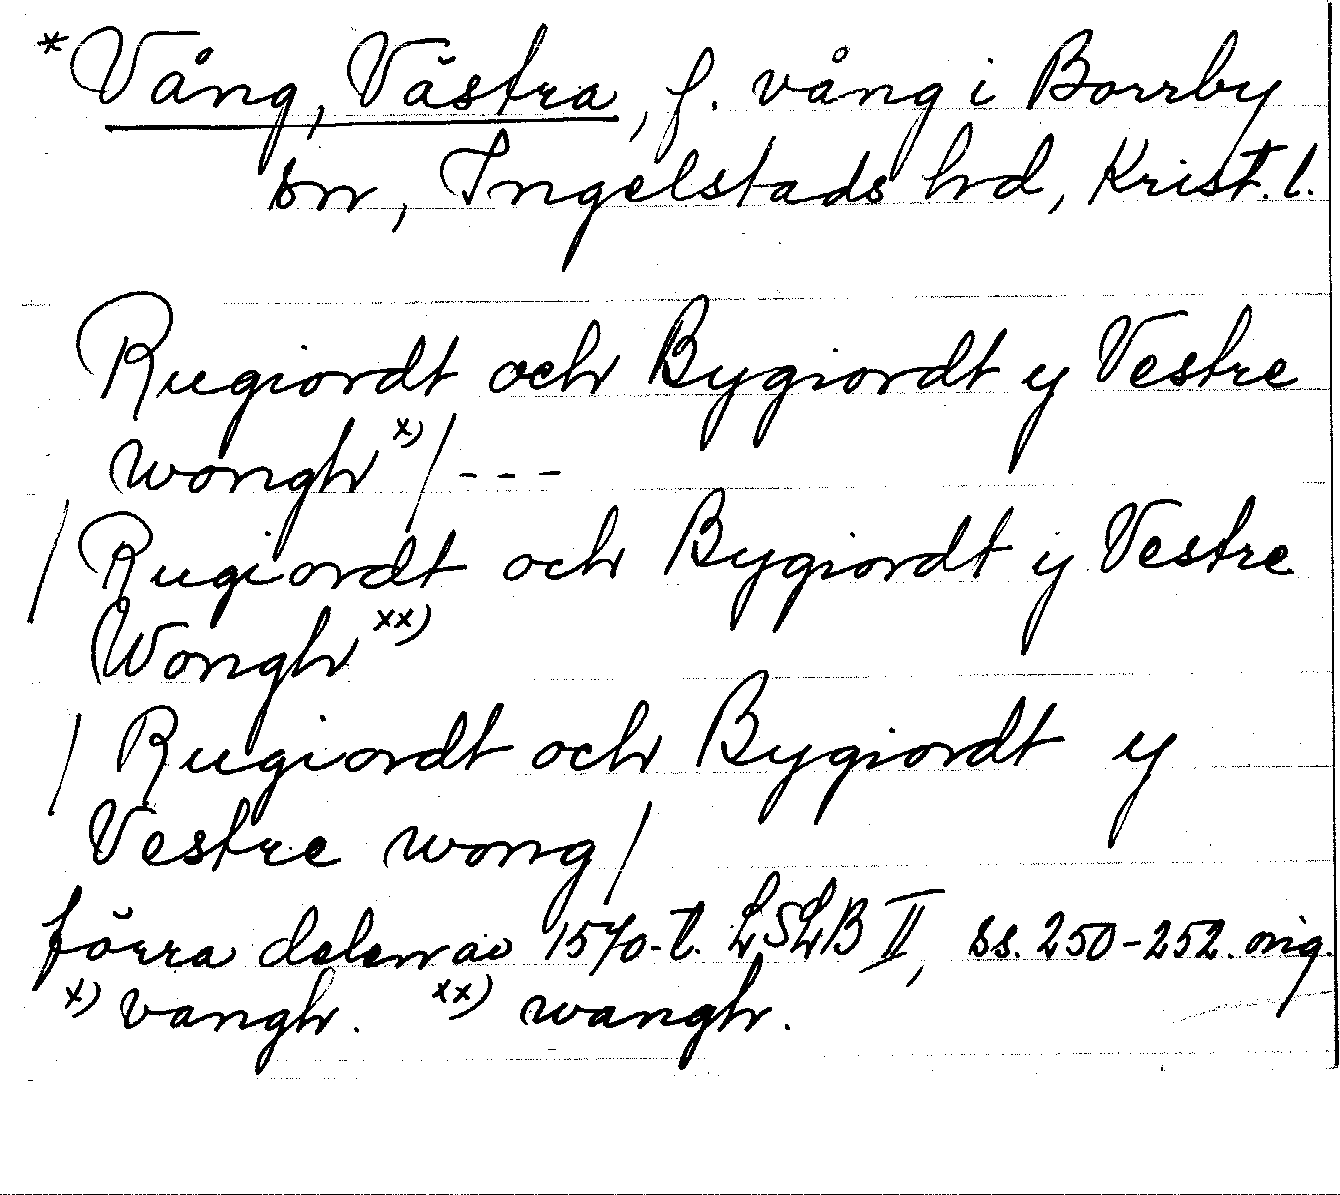 *Vång, Västra, f. vång i Borrby
sn, Ingelstads hrd, Krist. l.
Rugiordt och Bygiordt y Vestre
wongh x) / - - -
/ Rugiordt och Bygiordt y Vestre
Wongh xx)
/ Rugiordt och Bygiordt y
Vestre wong /
förra delen av 1570-t. LSLB II, ss. 250-252. orig.
x) vangh. xx) wangh.